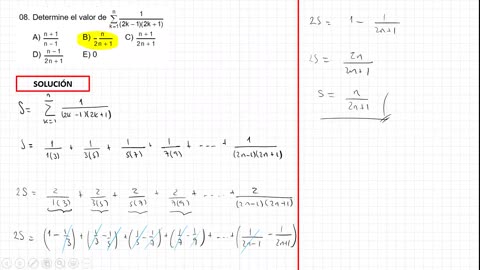 08. Determine el valor de \sum_{k=1}^{n} \frac{1}{(2k-1)(2k+1)}
A) \frac{n+1}{n-1} B) \frac{n}{2n+1} C) \frac{n+1}{2n+1}
D) \frac{n-1}{2n+1} E) 0
SOLUCIÓN
S = \sum_{k=1}^{n} \frac{1}{(2k-1)(2k+1)}
S = \frac{1}{1(3)} + \frac{1}{3(5)} + \frac{1}{5(7)} + \frac{1}{7(9)} + ---- + \frac{1}{(2n-1)(2n+1)}
2S = \frac{2}{1(3)} + \frac{2}{3(5)} + \frac{2}{5(7)} + \frac{2}{7(9)} + ---- + \frac{2}{(2n-1)(2n+1)}
2S = (1 - \frac{1}{3}) + (\frac{1}{3} - \frac{1}{5}) + (\frac{1}{5} - \frac{1}{7}) + (\frac{1}{7} - \frac{1}{9}) + ---- + (\frac{1}{2n-1} - \frac{1}{2n+1})
2S = 1 - \frac{1}{2n+1}
2S = \frac{2n}{2n+1}
S = \frac{n}{2n+1}